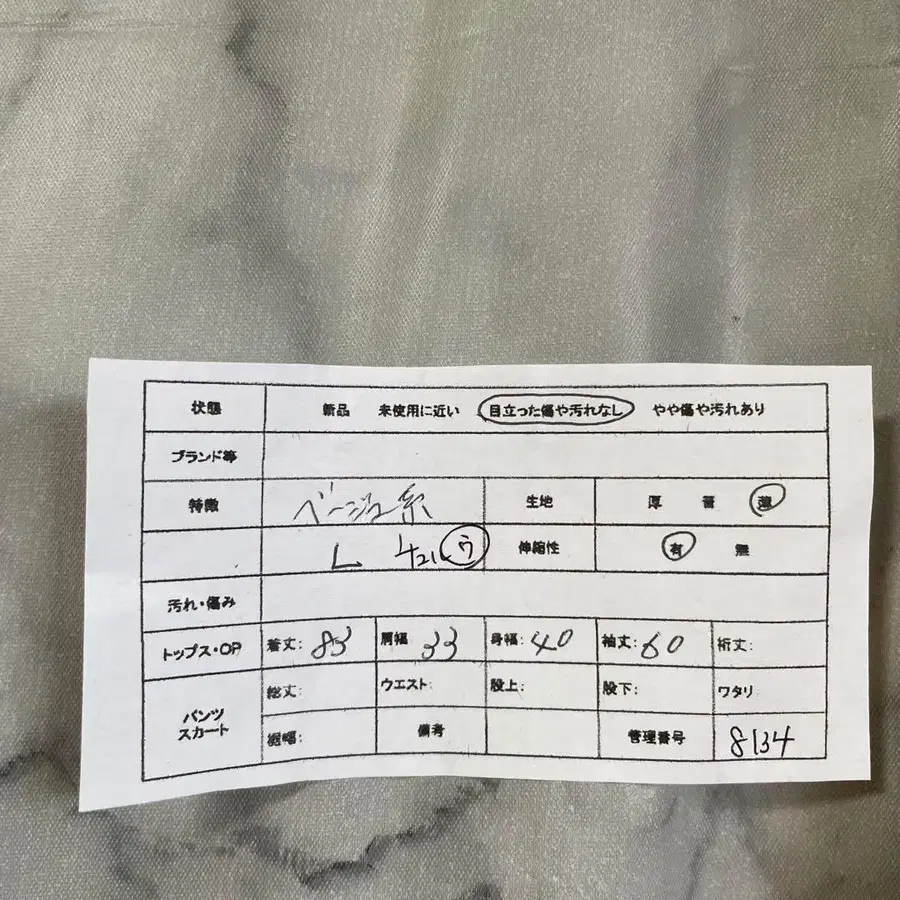 状態 新品 未使用に近い 目立った傷や汚れなし やや傷や汚れあり
ブランド等
特徴 ベージュ系 生地 厚 普 薄
L 421 ウ 伸縮性 有 無
汚れ・傷み
トップス・OP 着丈: 83 肩幅 33 身幅: 40 袖丈: 60 裄丈:
パンツ スカート 総丈: ウエスト: 股上: 股下: ワタリ
裾幅: 備考 管理番号 8134